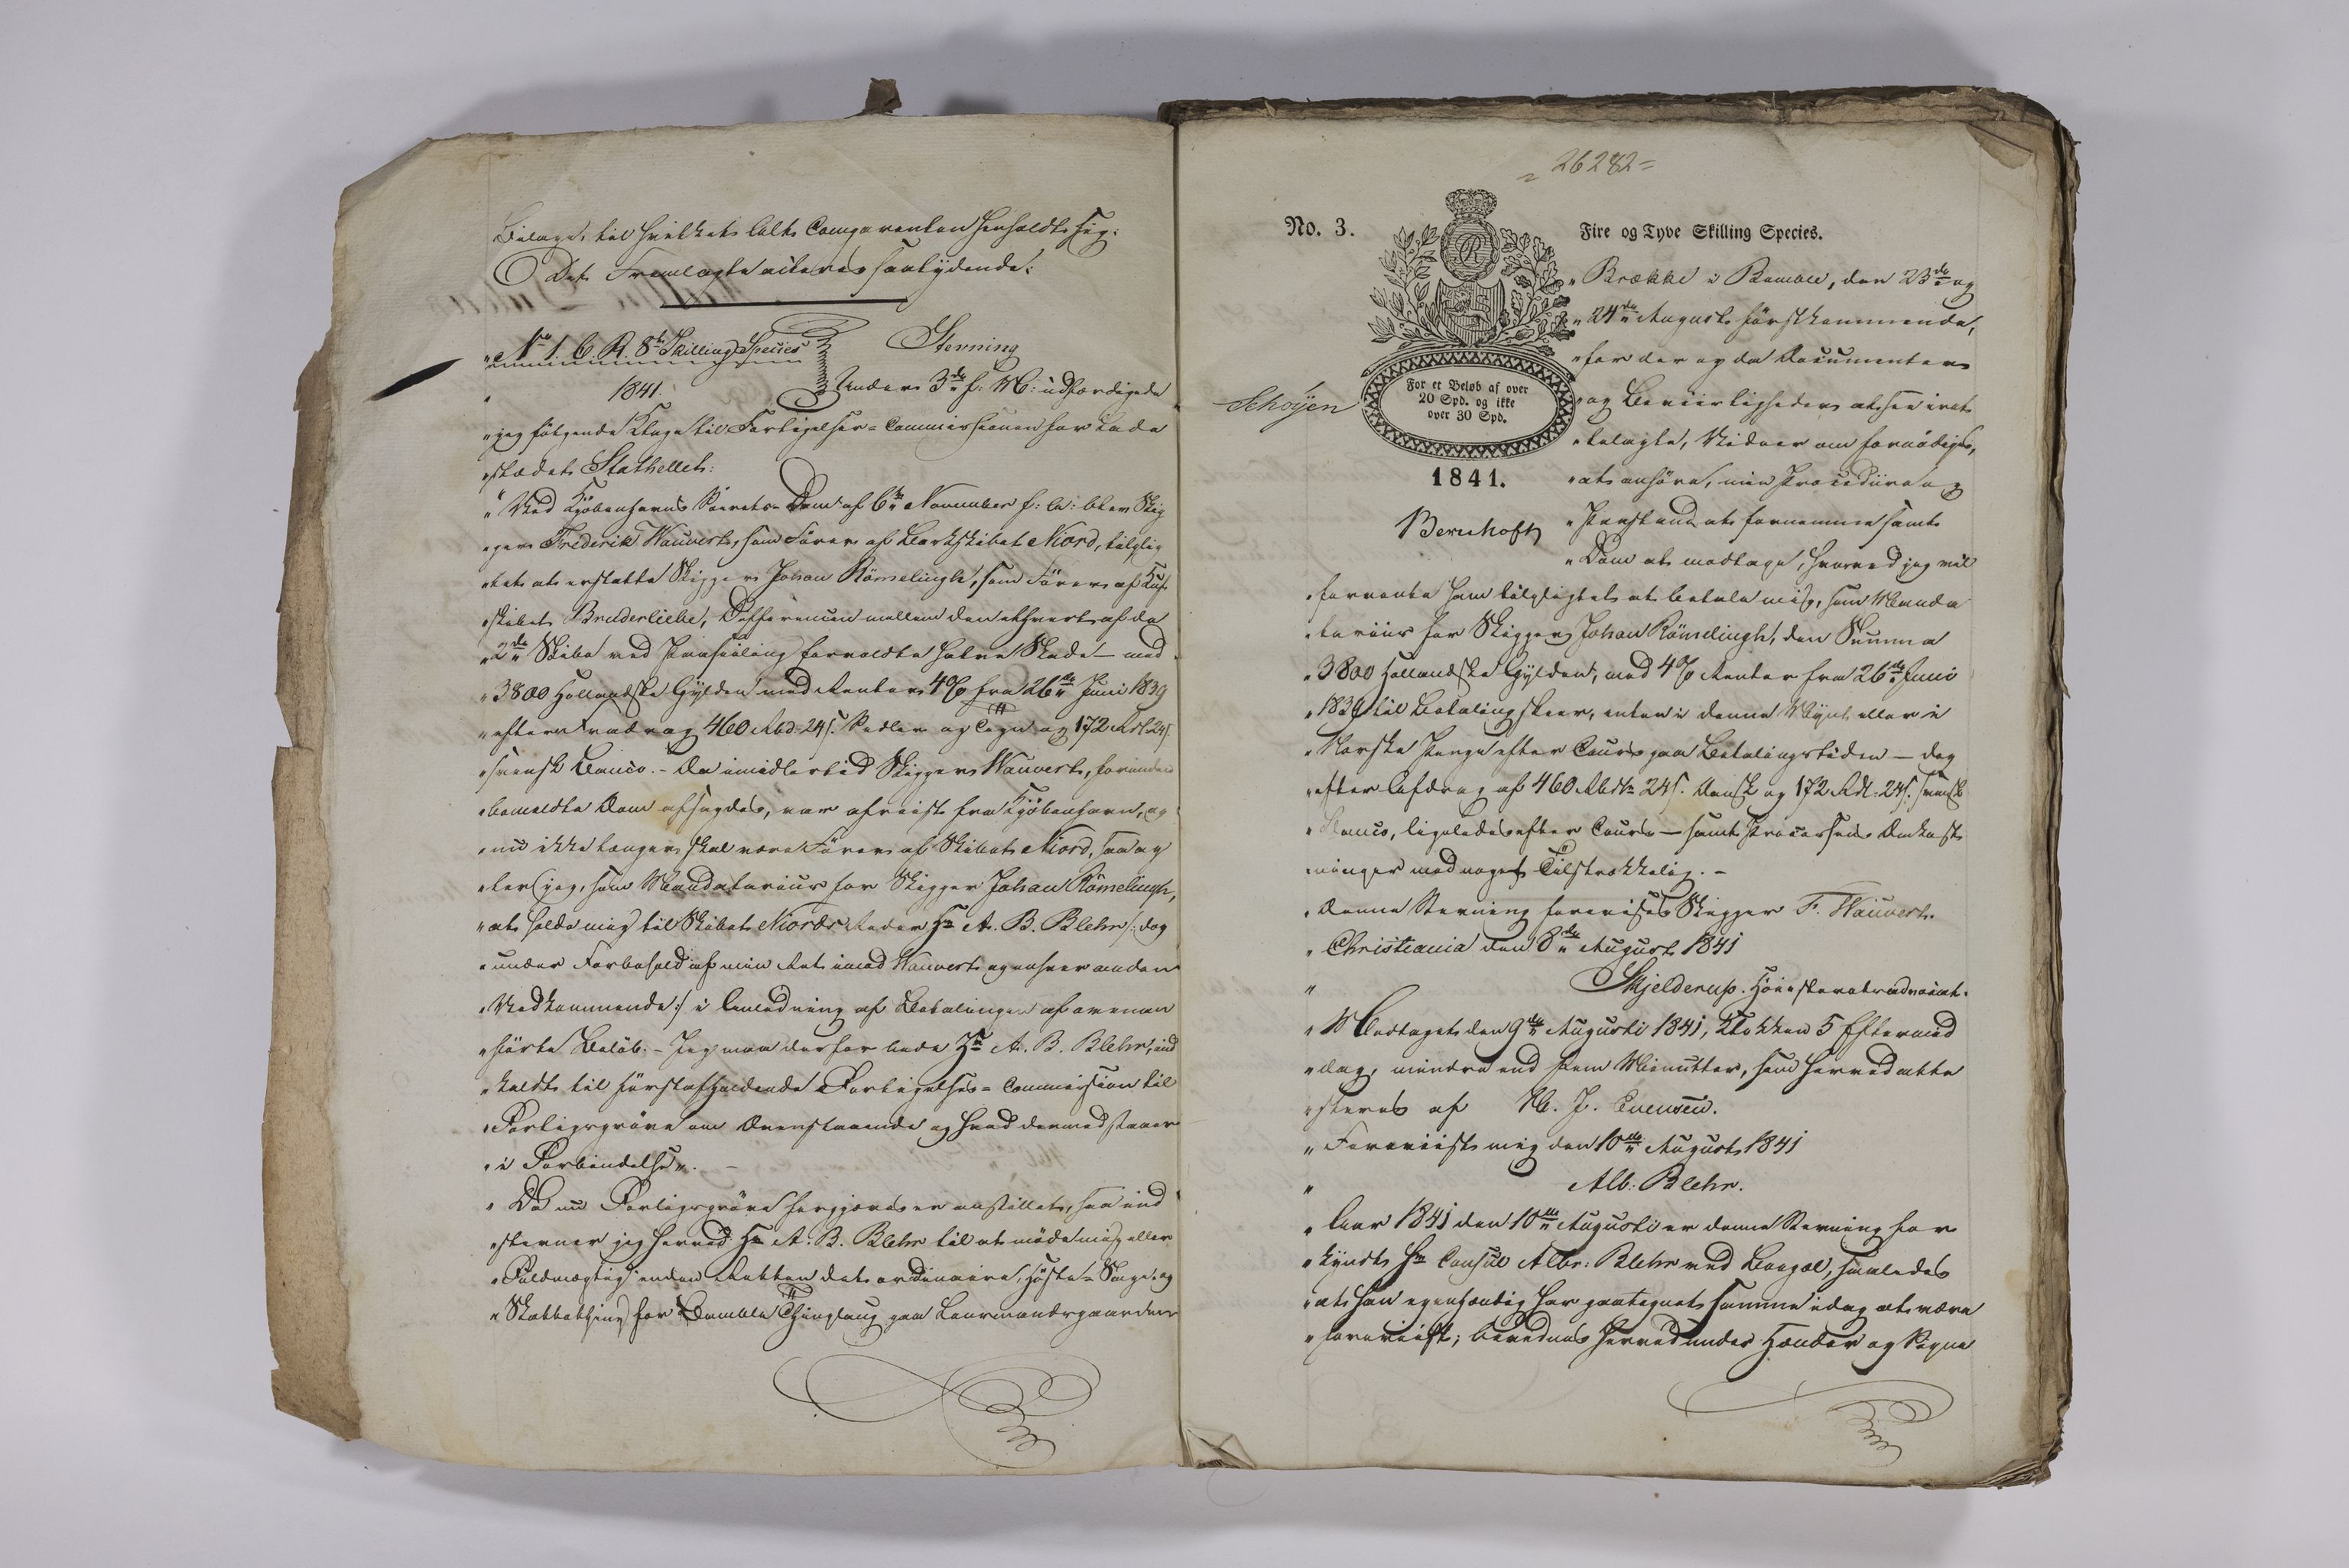 Bilage, til hvilket Alt Comparenten henholdt sig.
Det Fremlagte acteres saalydende:
"No 1. C. R. 8te Skilling Species
Stevning
" 1841.
Under 3die f: M: udfærdigede
"jeg følgende Klage til Forligelses-Commissionen for Lade
"stædet Stathellet:
"Ved Kjöbenhavns Söerets-Dom af 6te November f: A: blev Skip
"per Frederik Wauvert, som Förer af Barkskibet Niord, tilplig
"tet at erstatte Skipper Johan Römelingh, som Förer af Kuf
"skibet Bruderliebe, Differencen mellem den ethvert af de
"2de Skibe ved Paaseiling forvoldte halve Skade - med
"3800 Hollandske Gylden med Renter 4% fra 26de Juni 1839
"efter Fradrag 460 Rbd. 24 s. Sedler og Tegn og 172 Rdl 24 s.
"svensk Banco. - Da imidlertid Skipper Wauvert, forinden
"bemeldte Dom afsagdes, var afreist fra Kjöbenhavn, og
"nu ikke længer skal være Förer af Skibet Niord, saa ag
"ter jeg, som Mandatarius for Skipper Johan Römelingh,
"at holde mig til Skibet Niords Reder Hr A. B. Blehr /: dog
"under Forbehold af min Ret imod Wauvert og enhver anden
"Vedkommende :/ i Anledning af Betalingen af ovenan
"förte Belöb. - Jeg maa derfor bede Hr A. B. Blehr, ind
"kaldt til förstafholdende Forligelses-Commission til
"Forligspröve om Ovenstaaende og hvad dermed staaer
"i Forbindelse". -
"Da nu Forligspröve forgjæves er anstillet, saa ind
"stevner jeg herved Hr A. B. Blehr til at möde mig eller
"Fuldmægtig inden Retten det ordinaire Höste-Sage- og
"Skattething for Bamble Thinglaug paa Leensmandsgaarden
= 26282 =
No. 3.
Fire og Tyve Skilling Species.
For et Beløb af over
20 Spd. og ikke
over 30 Spd.
Schøyen
1841.
Bernhoft
"Brække i Bamble, den 23de og
"24de August förstkommende,
"for der og da Documenter
"og Beviisligheder at see iret
"telagte, Vidner om fornödiges,
"at anhöre, min Procedure og
"Paastand at fornemme samt
"Dom at modtage, hvorved jeg vil
"forvente ham tilpligtet at betale mig, som Manda
"tarius for Skipper Johan Römelingh, den Summa
"3800 Hollandske Gylden, med 4% Renter fra 26de Juni
"1839 til Betaling skeer, enten i denne Mynt eller i
"Norske Penge efter Cours paa Betalingstiden - dog
"efter Afdrag af 460 Rbdlr 24 s. Dansk og 172 Rdl. 24 s. svensk
"Banco, ligeledes efter Cours - samt Processens Omkost
"ninger med noget Tilstrækkelig. -
"Denne Stevning forevises Skipper F. Wauvert.
"Christiania den 8de August 1841
" Skjelderup. Höiesteretsadvocat.
"Modtaget den 9de Augusti 1841, Klokken 5 Eftermid
"dag, mindre end fem Minutter, som herved atte
"steres af M. J. Evensen.
"Foreviist mig den 10de August 1841
" Alb: Blehr.
"Aar 1841 den 10de Augusti er denne Stevning for
"kyndt Hr Consul Albr: Blehr ved Langöe, saaledes
"at han egenhændig har paategnet samme idag at være
"foreviist; bevidnes herved under Hænder og Segne